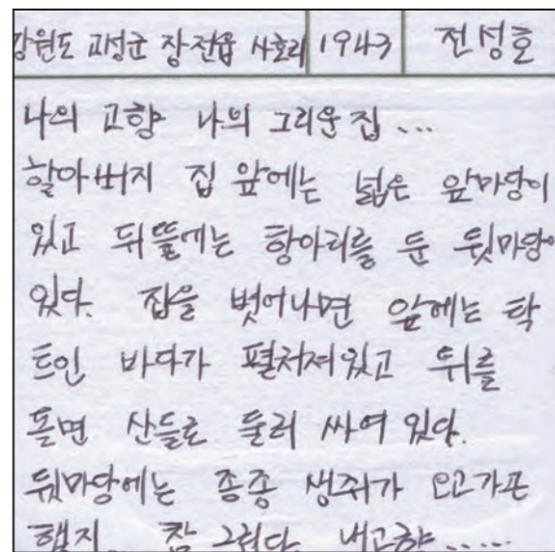 강원도 고성군 장전읍 사호리 1943 전성호
나의 고향 나의 그리운 집...
할아버지 집 앞에는 넓은 앞마당이
있고 뒤뜰에는 항아리를 둔 뒷마당이
있다. 집을 벗어나면 앞에는 탁
트인 바다가 펼쳐져있고 뒤를
돌면 산들로 둘러 싸여 있다.
뒷마당에는 종종 생쥐가 오고가곤
했지. 참 그립다 내고향.....